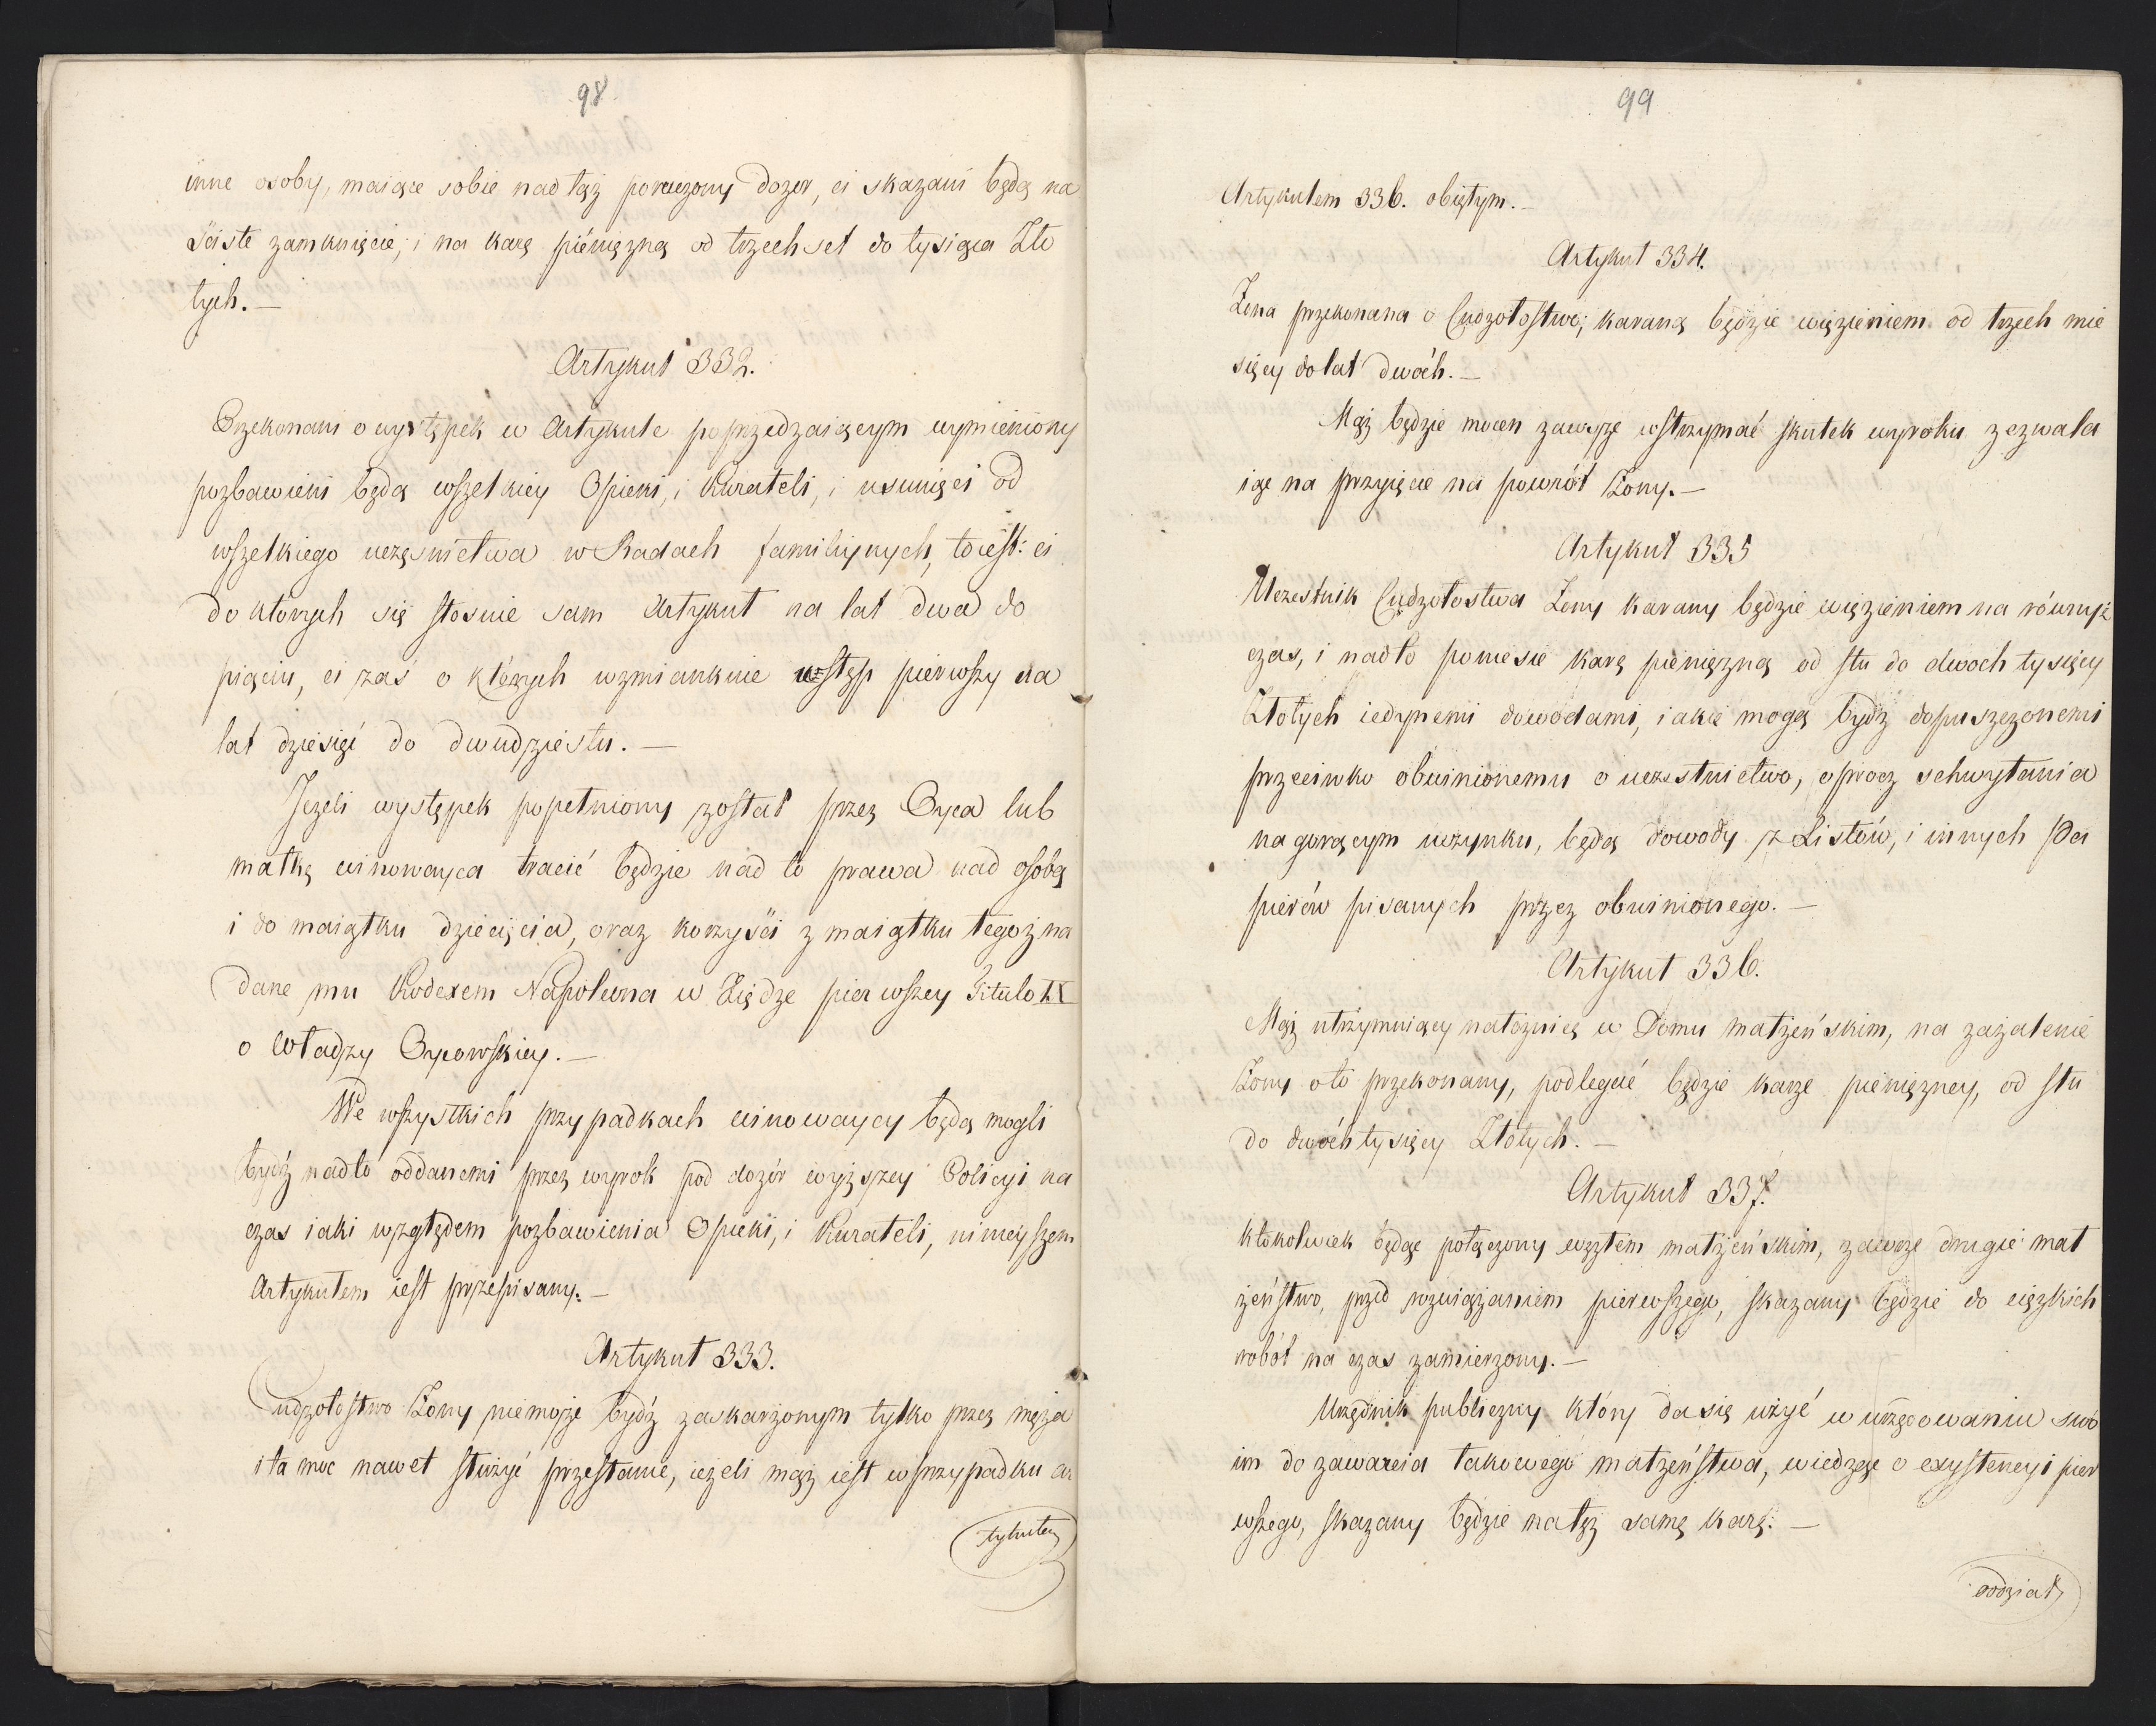 98
inne osoby, maiące sobie nad tąż poruczony dozor, ci skazani będą na
ściste zamknięcie, i na karę piéniężną od trzechset do tysiąca Zło
tych.—
Artykuł 332.
Przekonani o występek w Artykule poprzedzaiącym wymieniony
pozbawieni będą wszelkiey Opieki, i Kurateli, i usunięci od
wszelkiego uczęsnictwa w Radach familiynych, toiest: ci
do ktorych się stosuie sam Artykuł na lat dwa do
pięciu, ci zaś o których wzmiankuie wstęp pierwszy na
lat dziesięć do dwudziestu.—
Jeżeli występek popełniony został przez Oyca lub
matkę winowayca tracić będzie nad to prawa nad osobą
i do maiątku dziecięcia, oraz korzyści z maiątku tegoż na
dane mu Kodexem Napoleona w Xiędze pierwszey Titulo IX
o Władzy Oycowskiey.—
We wszystkich przypadkach winowaycy będą mogli
bydź nadto oddanemi przez wyrok pod dozór wyższey Policyi na
czas iaki względem pozbawienia Opieki, i Kurateli, ninieyszem
Artykułem iest przepisany.—
Artykuł 333.
Cudzołostwo Żony niemoże bydź zaskarżonym tylko przez męża
i ta moc nawet służyć przestanie, ieżeli mąż iest w przypadku ar
tykułem
99
Artykułem 336. obiętym.—
Artykuł 334.
Żona przekonana o Cudzołostwo; karaną będzie więzieniem od trzech mie
sięcy do lat dwóch.—
Mąż będzie mocen zawsze wstrzymać skutek wyroku zezwala
iąc na przyięcie na powrót Żony.—
Artykuł 335
Uczestnik Cudzołostwa Żony karany będzie więzieniem na równyż
czas, i nadto poniesie karę pieniężną od stu do dwoch tysięcy
Złotych iedynemi dowodami, iakie mogą bydź dopuszczonemi
przeciwko obwinionemu o uczestnictwo, oprocz schwytania
na gorącym uczynku, będą dowody z Listów, i innych Pa
pierów pisanych przez obwinionego.—
Artykuł 336.
Mąż utrzymuiący nałożnicę w Domu małżeńskim, na zażalenie
Żony oto przekonany, podlegać będzie karze pieniężney, od stu
do dwóch tysięcy Złotych.—
Artykuł 337.
Ktokolwiek będąc połączony węzłem małżeńskim, zawrze drugie mał
żeństwo, przed rozwiązaniem pierwszego, skazany będzie do ciężkich
robót na czas zamierzony.—
Urzędnik publiczny który da się użyć w urzędowaniu swo
im do zawarcia takowego małżeństwa, wiedząc o exystencyi pier
wszego, skazany będzie na tęż samę karę.—
oddział